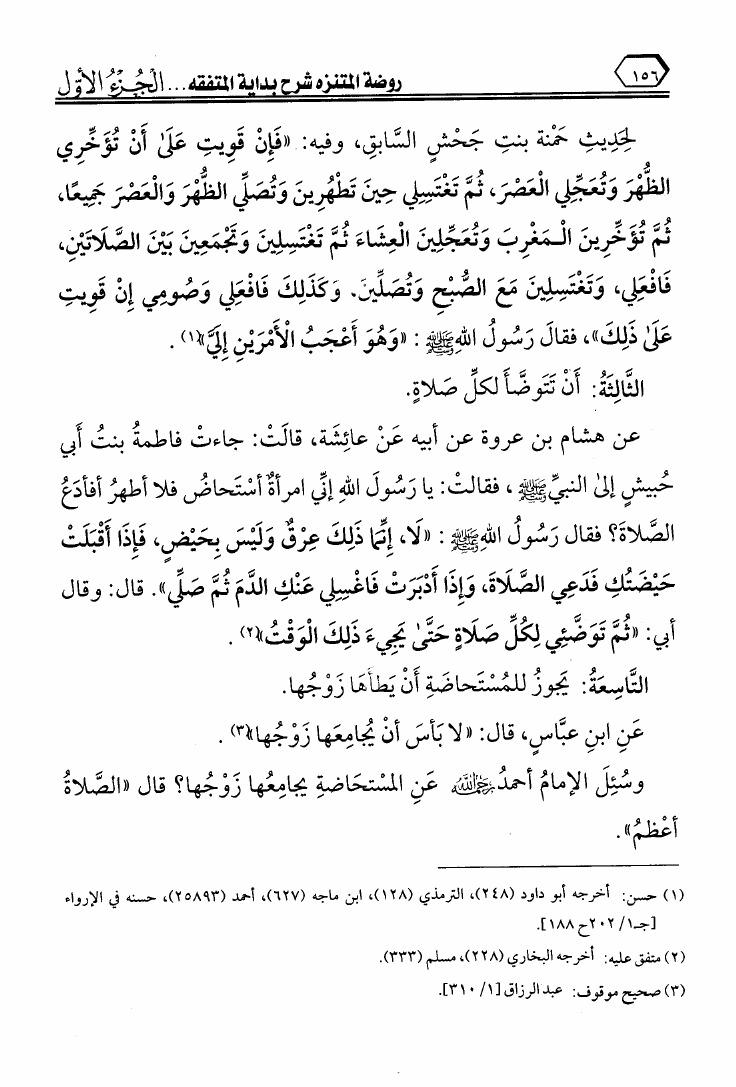 ١٥٦
روضة المتنزه شرح بداية المتفقه ... الْجُزْءُ الأَوَّل
لِحَدِيثِ حَمْنة بنتِ جَحْشٍ السَّابقِ، وفيه: «فَإِنْ قَوِيتِ عَلَىٰ أَنْ تُؤَخِّرِي
الظُّهْرَ وَتُعَجِّلِي الْعَصْرَ، ثُمَّ تَغْتَسِلِي حِينَ تَطْهُرِينَ وَتُصَلِّي الظُّهْرَ وَالْعَصْرَ جَمِيعًا،
ثُمَّ تُؤَخِّرِينَ الْـمَغْرِبَ وَتُعَجِّلِينَ الْعِشَاءَ ثُمَّ تَغْتَسِلِينَ وَتَجْمَعِينَ بَيْنَ الصَّلَاتَيْنِ،
فَافْعَلِي، وَتَغْتَسِلِينَ مَعَ الصُّبْحِ وَتُصَلِّينَ. وَكَذَلِكَ فَافْعَلِي وَصُومِي إِنْ قَوِيتِ
عَلَىٰ ذَلِكَ»، فقالَ رَسُولُ اللهِ ﷺ : «وَهُوَ أَعْجَبُ الْأَمْرَيْنِ إِلَيَّ»(١) .
الثَّالِثَةُ: أَنْ تَتَوضَّأَ لكلِّ صَلاةٍ.
عن هشام بن عروة عن أبيه عَنْ عائِشَة، قالَتْ: جاءتْ فاطمةُ بنتُ أبي
حُبيشٍ إلىٰ النبيِّ ﷺ ، فقالتْ: يا رَسُولَ اللهِ إنِّي امرأةٌ أسْتَحاضُ فلا أطهرُ أفأدَعُ
الصَّلاةَ؟ فقال رَسُولُ اللهِ ﷺ : «لَا، إِنَّمَا ذَلِكَ عِرْقٌ وَلَيْسَ بِحَيْضٍ، فَإِذَا أَقْبَلَتْ
حَيْضَتُكِ فَدَعِي الصَّلَاةَ، وَإِذَا أَدْبَرَتْ فَاغْسِلِي عَنْكِ الدَّمَ ثُمَّ صَلِّي». قال: وقال
أبي: «ثُمَّ تَوَضَّئِي لِكُلِّ صَلَاةٍ حَتَّىٰ يَجِيءَ ذَلِكَ الْوَقْتُ»(٢) .
التَّاسِعَةُ: يجوزُ للمُسْتَحاضَةِ أَنْ يَطأَهَا زَوْجُها.
عَنِ ابنِ عبَّاسٍ، قال: «لا بَأسَ أنْ يُجامِعَها زَوْجُها»(٣) .
وسُئِلَ الإمامُ أحمدُ رَحِمَهُ اللَّهُ عَنِ المُسْتحاضةِ يجامعُها زَوْجُها؟ قال «الصَّلاةُ
أعْظمُ».
(١) حسن: أخرجه أبو داود (٢٤٨)، الترمذي (١٢٨)، ابن ماجه (٦٢٧)، أحمد (٢٥٨٩٣)، حسنه في الإرواء
[جـ١/ ٢٠٢ح ١٨٨].
(٢) متفق عليه: أخرجه البخاري (٢٢٨)، مسلم (٣٣٣).
(٣) صحيح موقوف: عبد الرزاق [١/ ٣١٠].